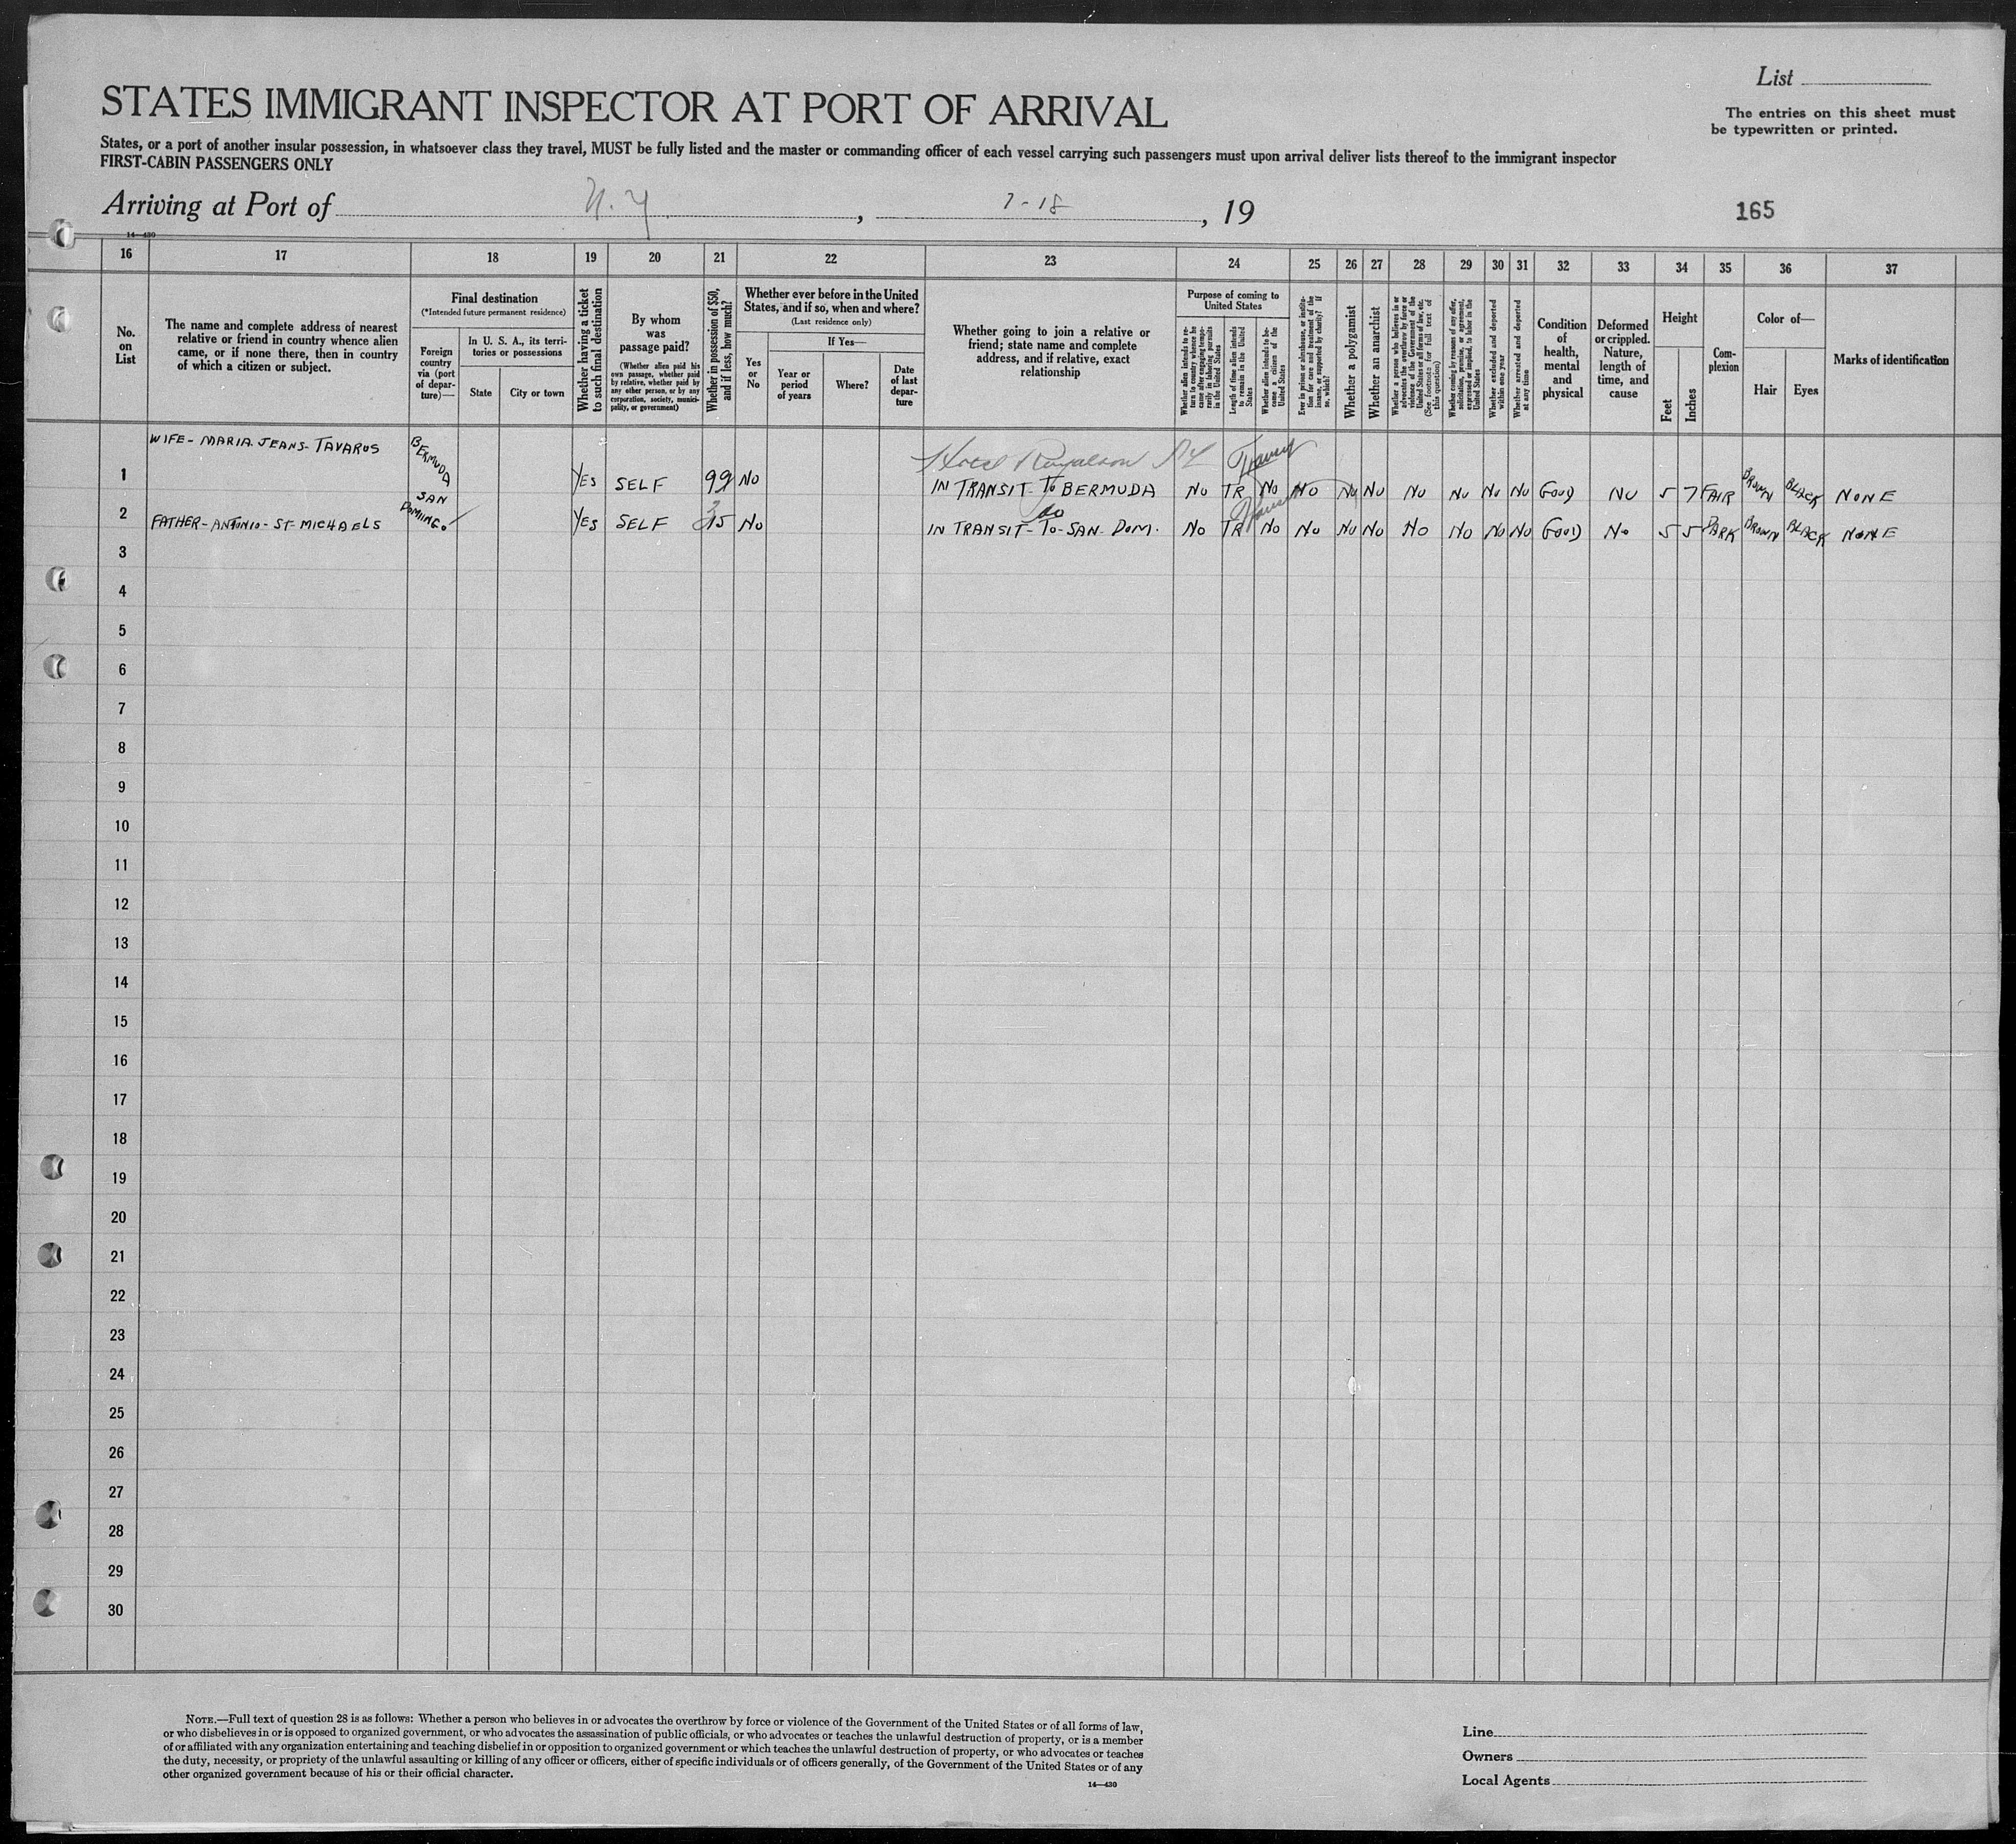 List
STATES IMMIGRANT INSPECTOR AT PORT OF ARRIVAL
The entries on this sheet must
be typewritten or printed.
States, or a port of another insular possession, in whatsoever class they travel, MUST be fully listed and the master or commanding officer of each vessel carrying such passengers must upon arrival deliver lists thereof to the immigrant inspector
FIRST-CABIN PASSENGERS ONLY
Arriving at Port of N.Y , 7-18 , 19
165
14—430
16 17 18 19 20 21 22 23 24 25 26 27 28 29 30 31 32 33 34 35 36 37
No.
on
List
The name and complete address of nearest
relative or friend in country whence alien
came, or if none there, then in country
of which a citizen or subject.
Final destination
(*Intended future permanent residence)
Foreign
country
via (port
of depar-
ture)—
In U. S. A., its terri-
tories or possessions
State
City or town
Whether having a ticket
to such final destination
By whom
was
passage paid?
(Whether alien paid his
own passage, whether paid
by relative, whether paid by
any other person, or by any
corporation, society, munici-
pality, or government)
Whether in possession of $50,
and if less, how much?
Whether ever before in the United
States, and if so, when and where?
(Last residence only)
Yes
or
No
If Yes—
Year or
period
of years
Where?
Date
of last
depar-
ture
Whether going to join a relative or
friend; state name and complete
address, and if relative, exact
relationship
Purpose of coming to
United States
Whether alien intends to re-
turn to country whence he
came after engaging tempo-
rarily in laboring pursuits
in the United States
Length of time alien intends
to remain in the United
States
Whether alien intends to be-
come a citizen of the
United States
Ever in prison or almshouse, or institu-
tion for care and treatment of the
insane, or supported by charity? If
so, which?
Whether a polygamist
Whether an anarchist
Whether a person who believes in or
advocates the overthrow by force or
violence of the Government of the
United States or all forms of law, etc.
(See footnote for full text of
this question)
Whether coming by reason of any offer,
solicitation, promise, or agreement,
expressed or implied, to labor in the
United States
Whether excluded and deported
within one year
Whether arrested and deported
at any time
Condition
of
health,
mental
and
physical
Deformed
or crippled.
Nature,
length of
time, and
cause
Height
Feet
Inches
Com-
plexion
Color of—
Hair
Eyes
Marks of identification
WIFE - MARIA. JEANS - TAVARUS BERMUDA Hotel NY
1 YES SELF 99 NO IN TRANSIT - To BERMUDA NO TR NO NO NO NO NO NO NO NO GOOD NO 5 7 FAIR BROWN BLACK NONE
2 SAN DOMINGO do
FATHER - ANTONIO - ST- MICHAELS YES SELF 15 NO IN TRANSIT - To - SAN - DOM. NO TR NO NO NO NO NO NO NO NO GOOD NO 5 5 DARK BROWN BLACK NONE
3
4
5
6
7
8
9
10
11
12
13
14
15
16
17
18
19
20
21
22
23
24
25
26
27
28
29
30
NOTE.—Full text of question 28 is as follows: Whether a person who believes in or advocates the overthrow by force or violence of the Government of the United States or of all forms of law,
or who disbelieves in or is opposed to organized government, or who advocates the assassination of public officials, or who advocates or teaches the unlawful destruction of property, or is a member
of or affiliated with any organization entertaining and teaching disbelief in or opposition to organized government or which teaches the unlawful destruction of property, or who advocates or teaches
the duty, necessity, or propriety of the unlawful assaulting or killing of any officer or officers, either of specific individuals or of officers generally, of the Government of the United States or of any
other organized government because of his or their official character.
14—430
Line
Owners
Local Agents